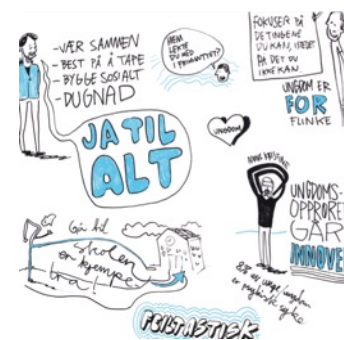 -VÆR SAMMEN
-BEST PÅ Å TAPE
-BYGGE SOSIALT
-DUGNAD
JA TIL
ALT
HVEM
LEKTE
DU MED
I FRIMINUTTET?
FOKUSER PÅ
DE TINGENE
DU KAN, ISTEDET
PÅ DET DU
IKKE KAN.
UNGDOM ER
FOR
FLINKE
UNGDOM
UNGDOMS-
OPPRØRET
GÅR
INNOVE
Gå til
skolen
er kjempe
bra!
8% av unge/ungdom
er psykiske syke
FEILTASTISK